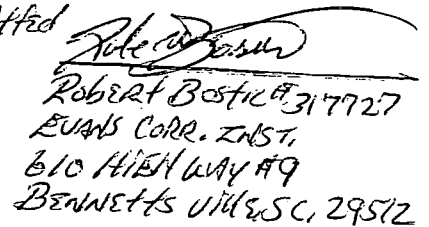 Robert Bostic #317727
EVANS CORR. INST.
610 HIEHWAY #9
BENNETTS VILLE, SC, 29512